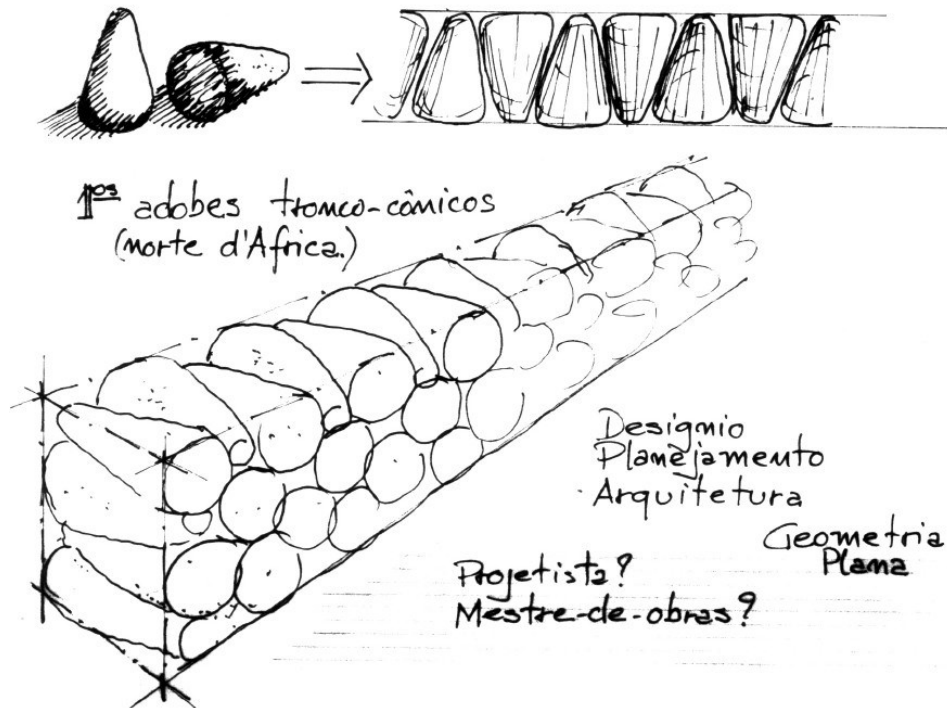 1ºs adobes tronco-cônicos
(norte d'Africa.)
Designio
Planejamento
Arquitetura
Geometria
Plana
Projetista?
Mestre-de-obras?